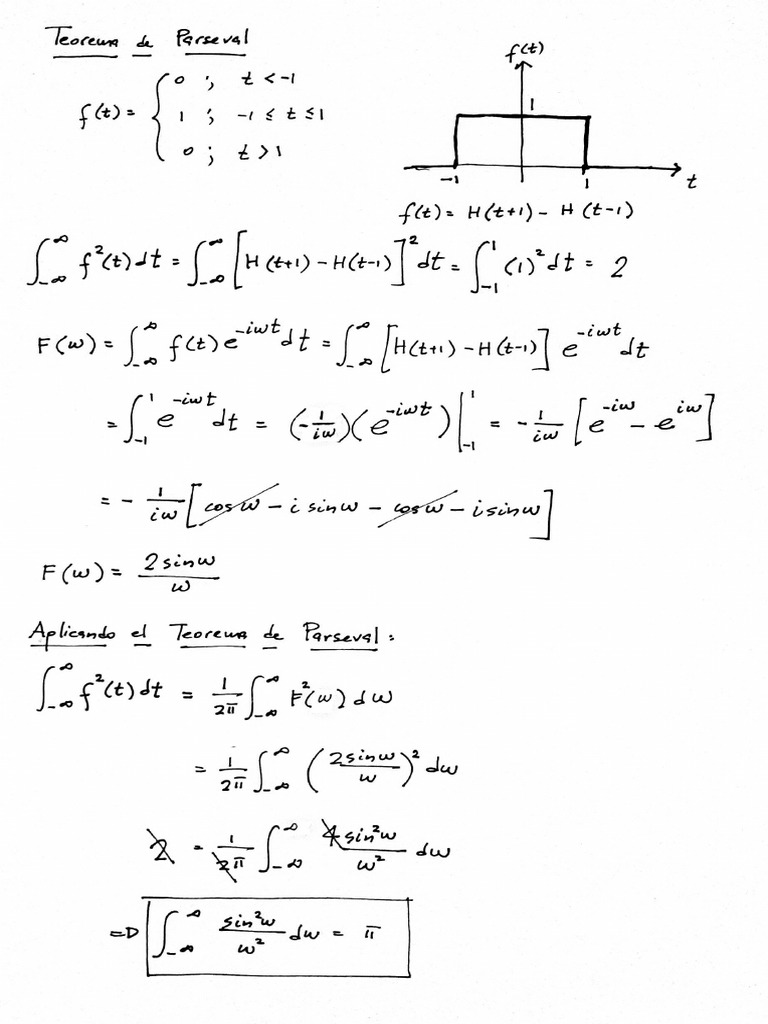 Teorema de Parseval
f(t) = { 0 ; t < -1
1 ; -1 ≤ t ≤ 1
0 ; t > 1
f(t)
1
-1 1 t
f(t) = H(t+1) - H(t-1)
∫_{-∞}^{∞} f²(t) dt = ∫_{-∞}^{∞} [H(t+1) - H(t-1)]² dt = ∫_{-1}^{1} (1)² dt = 2
F(w) = ∫_{-∞}^{∞} f(t) e^{-iwt} dt = ∫_{-∞}^{∞} [H(t+1) - H(t-1)] e^{-iwt} dt
= ∫_{-1}^{1} e^{-iwt} dt = (-1/iw)(e^{-iwt})|_{-1}^{1} = -1/iw [e^{-iw} - e^{iw}]
= - 1/iw [cos w - i sin w - cos w - i sin w]
F(w) = 2 sin w / w
Aplicando el Teorema de Parseval:
∫_{-∞}^{∞} f²(t) dt = 1/2π ∫_{-∞}^{∞} F²(w) dw
= 1/2π ∫_{-∞}^{∞} (2 sin w / w)² dw
2 = 1/2π ∫_{-∞}^{∞} 4 sin² w / w² dw
⇒ ∫_{-∞}^{∞} sin² w / w² dw = π